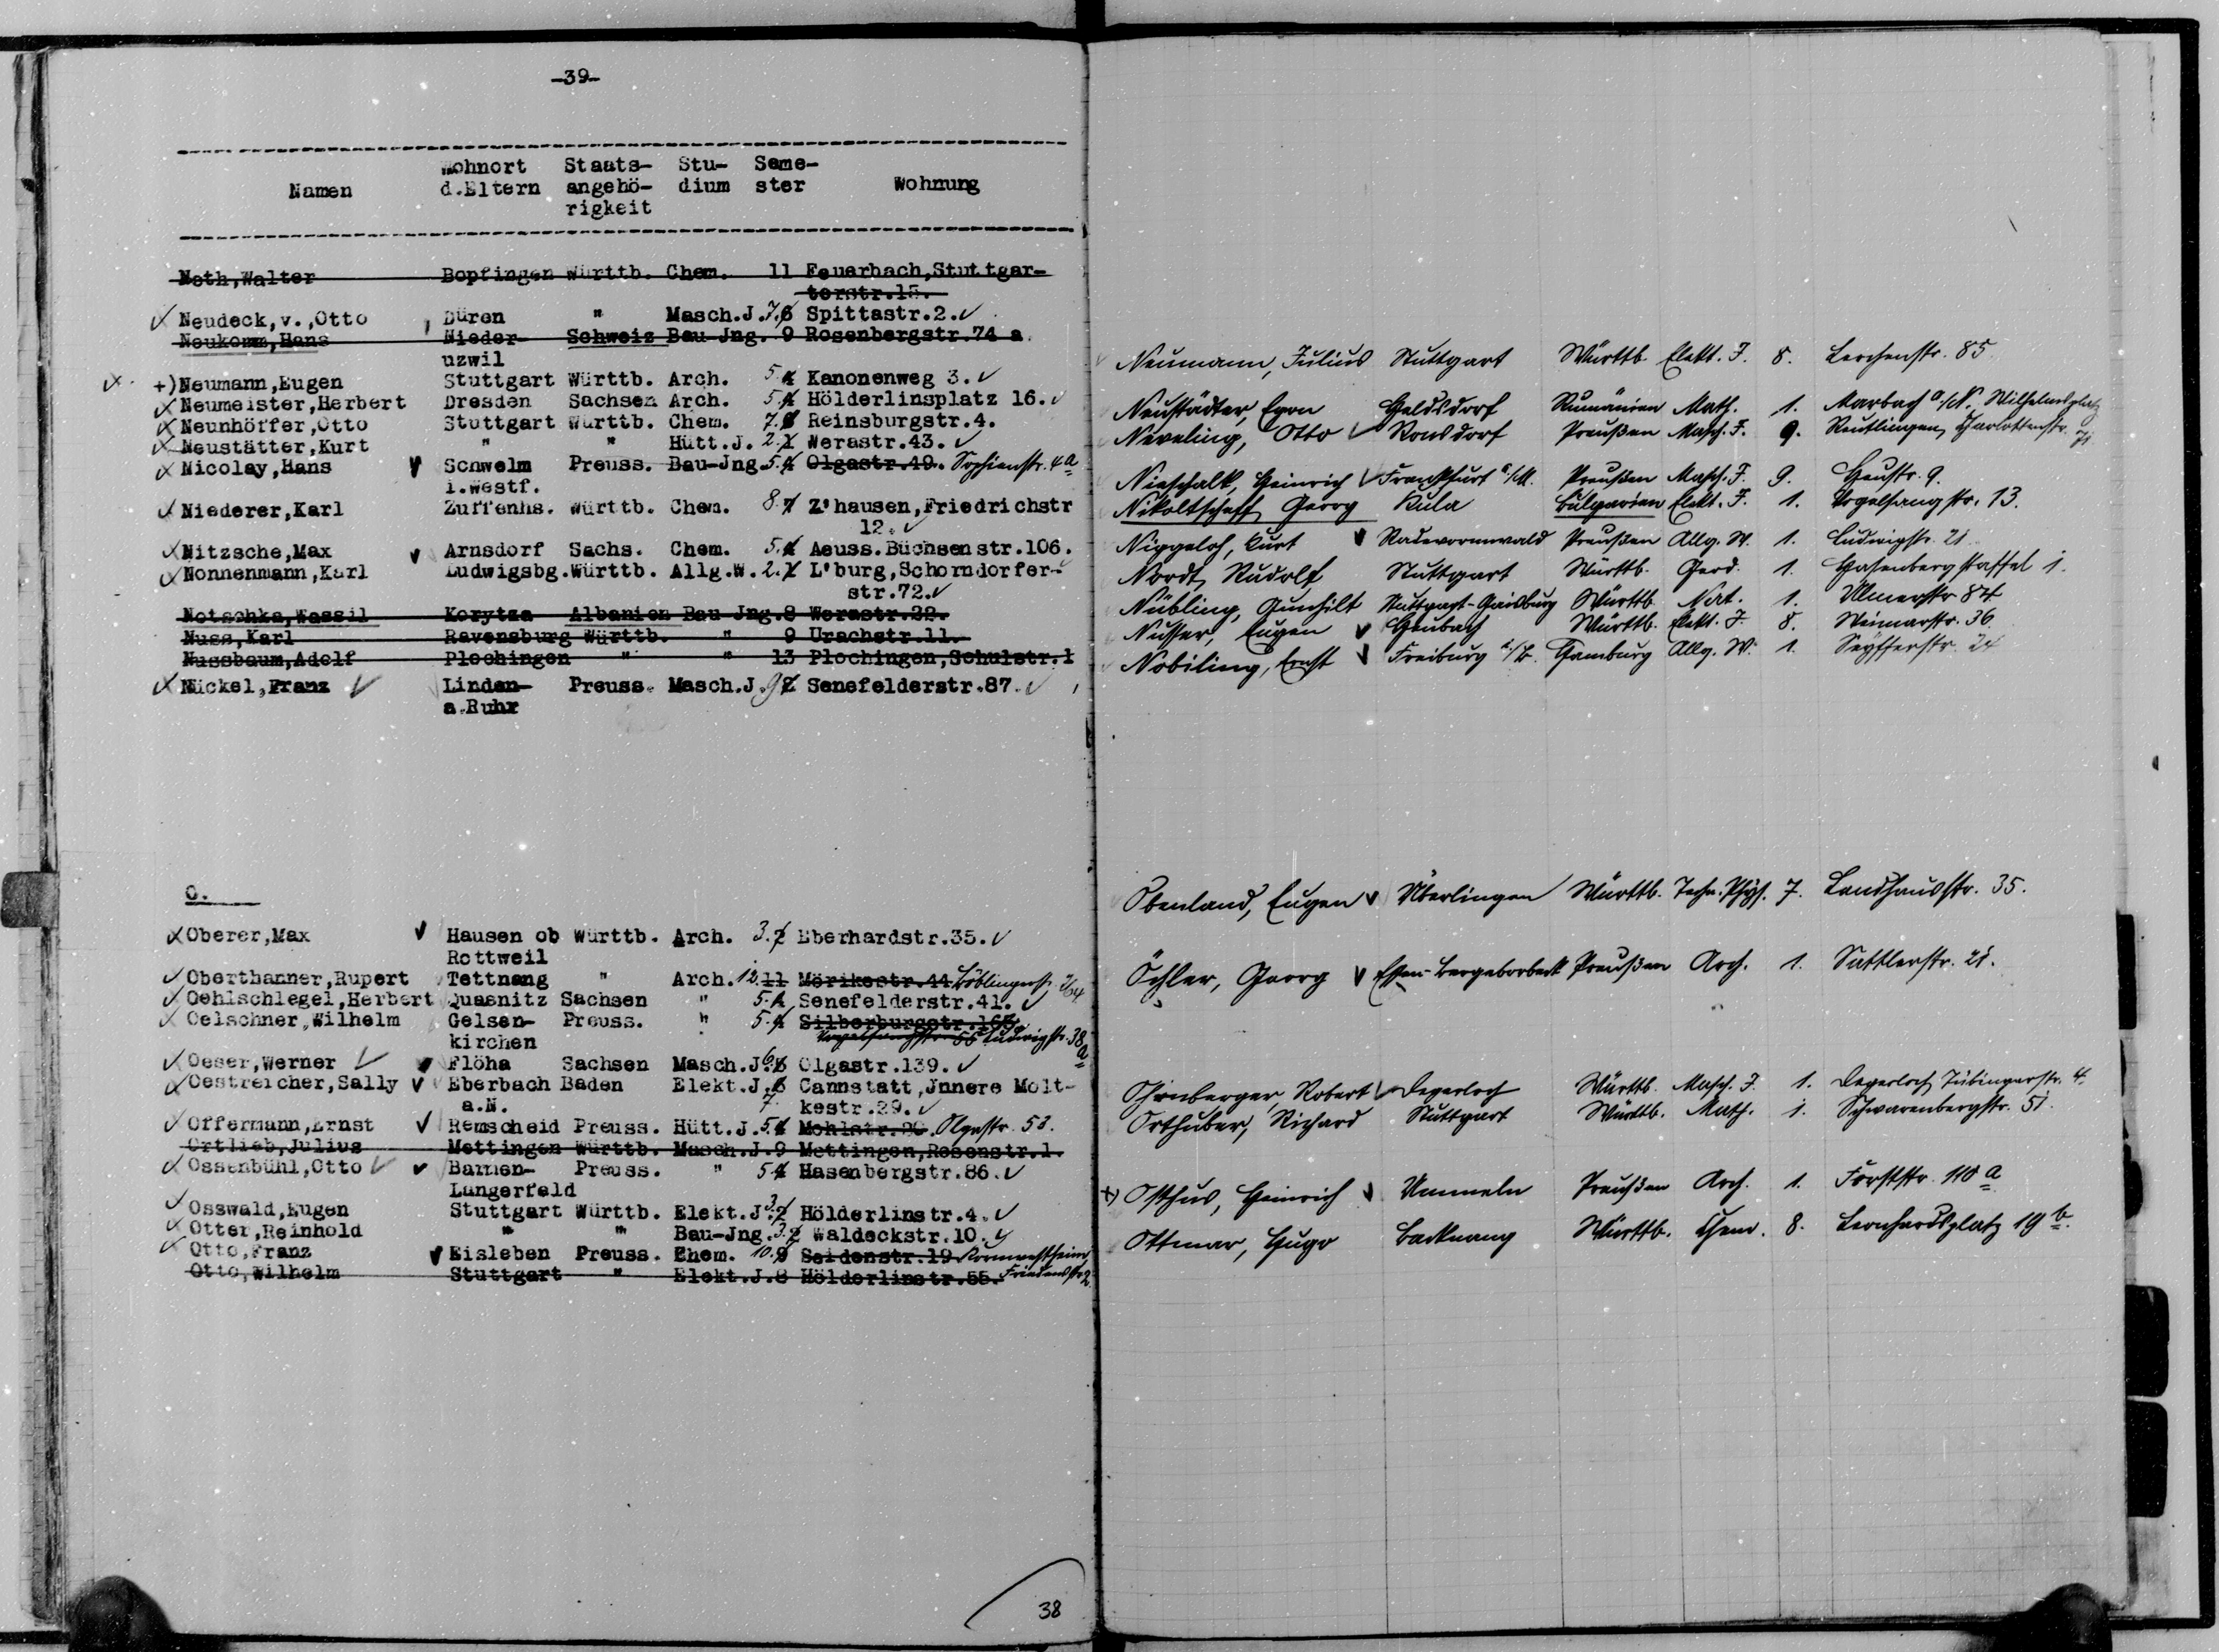 -39-
Namen Wohnort d.Eltern Staats-angehö-rigkeit Stu-dium Seme-ster Wohnung
Neth,Walter Bopfingen Württb. Chem. 11 Feuerbach,Stuttgar-
terstr.15.
Neudeck,v.,Otto Düren " Masch.J. 7. 6 Spittastr.2.
Neukomm,Hans Nieder- Schweiz Bau-Jng. 9 Rosenbergstr.74 a
uzwil
+)Neumann,Eugen Stuttgart Württb. Arch. 5. 4 Kanonenweg 3.
Neumeister,Herbert Dresden Sachsen Arch. 5. 4 Hölderlinsplatz 16.
Neunhöffer,Otto Stuttgart Württb. Chem. 7. Reinsburgstr.4.
Neustätter,Kurt " " Hütt.J. 2. 1 Werastr.43.
Nicolay,Hans Schwelm Preuss. Bau-Jng. 5. 4 Olgastr.49. Sophienstr. 4a
i.Westf.
Niederer,Karl Zuffenhs. Württb. Chem. 8. 7 Z'hausen,Friedrichstr
12.
Nitzsche,Max Arnsdorf Sachs. Chem. 5. 4 Aeuss.Büchsenstr.106.
Nonnenmann,Karl Ludwigsbg.Württb. Allg.W. 2. 1 L'burg,Schorndorfer-
str.72.
Notschka,Wassil Korytza Albanien Bau-Jng.8 Werastr.32.
Nuss,Karl Ravensburg Württb. " 9 Urachstr.11.
Nussbaum,Adolf Plochingen " " 13 Plochingen,Schulstr.1
Nückel,Franz Linden- Preuss. Masch.J. 9 8 Senefelderstr.87.
a.Ruhr
O.
Oberer,Max Hausen ob Württb. Arch. 3. 2 Eberhardstr.35.
Rottweil
Oberthanner,Rupert Tettnang " Arch. 12. 11 Mörikestr.44. Böblingerstr.
Oehlschlegel,Herbert Quasnitz Sachsen " 5. 4 Senefelderstr.41.
Oelschner,Wilhelm Gelsen- Preuss. " 5. 4 Silberburgstr.163.
kirchen Vogelsangstr. 55 Ludwigstr. 38 a
Oeser,Werner Flöha Sachsen Masch.J. 6. 5 Olgastr.139.
Oestreicher,Sally Eberbach Baden Elekt.J. 6 Cannstatt,Jnnere Molt-
a.N. 7. kestr.29.
Offermann,Ernst Remscheid Preuss. Hütt.J. 5. 4 Mohlstr.26. Olgastr. 53.
Ortlieb,Julius Mettingen Württb. Masch.J.9 Mettingen,Rosenstr.1.
Ossenbühl,Otto Barmen- Preuss. " 5. 4 Hasenbergstr.86.
Langerfeld
Osswald,Eugen Stuttgart Württb. Elekt.J. 3. 2 Hölderlinstr.4.
Otter,Reinhold " " Bau-Jng. 3. 2 Waldeckstr.10.
Otto,Franz Eisleben Preuss. Chem. 10. 9 Seidenstr.19 Kornwestheim
Otto,Wilhelm Stuttgart " Elekt.J.8 Hölderlinstr.55. Friedenstr. 2
38
Neumann, Julius Stuttgart Württb. Elekt. J. 8. Lerchenstr. 85
Neustädter, Egon Geldsdorf Rumänien Math. 1. Marbach a./N. Wilhelmsplatz
Neveling, Otto Ronsdorf Preußen Masch. J. 9. Reutlingen, Charlottenstr.
Nieschalk, Heinrich Frankfurt a./M. Preußen Masch. J. 9. Heustr. 9.
Nikoltschoff, Georg Kula Bulgarien Elekt. J. 1. Vogelsangstr. 13.
Niggeloh, Kurt Radevormwald Preußen Allg. W. 1. Ludwigstr. 21
Nordt, Rudolf Stuttgart Württb. Geod. 1. Hasenbergstaffel 1.
Nübling, Gunhilt Stuttgart-Gaisburg Württb. Nat. 1. Ulmerstr 84
Nusser, Eugen Heubach Württb. Elekt. J. 8. Weimarstr. 36.
Nobiling, Ernst Freiburg i/B. Hamburg Allg. W. 1. Seyfferstr. 24
Obenland, Eugen Überlingen Württb. Techn. Phys. 7. Landhausstr. 35.
Öchler, Georg Essen-Bergeborbeck Preußen Arch. 1. Sattlerstr. 21.
Ohrnberger, Robert Degerloch Württb. Masch. J. 1. Degerloch, Tübingerstr. 4.
Orthuber, Richard Stuttgart Württb. Math. 1. Schwarenbergstr. 51.
+) Osthus, Heinrich Ummeln Preußen Arch. 1. Forststr. 110 a
Ottmar, Hugo Backnang Württb. Chem. 8. Leonhardsplatz 19 b.